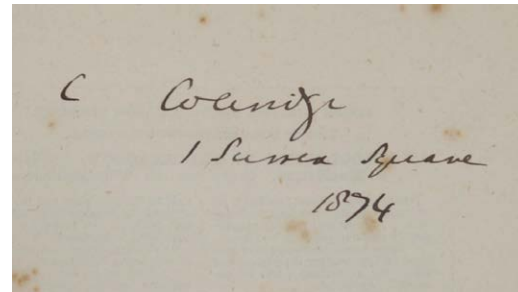 C Coleridge
1 Sussex Square
1874